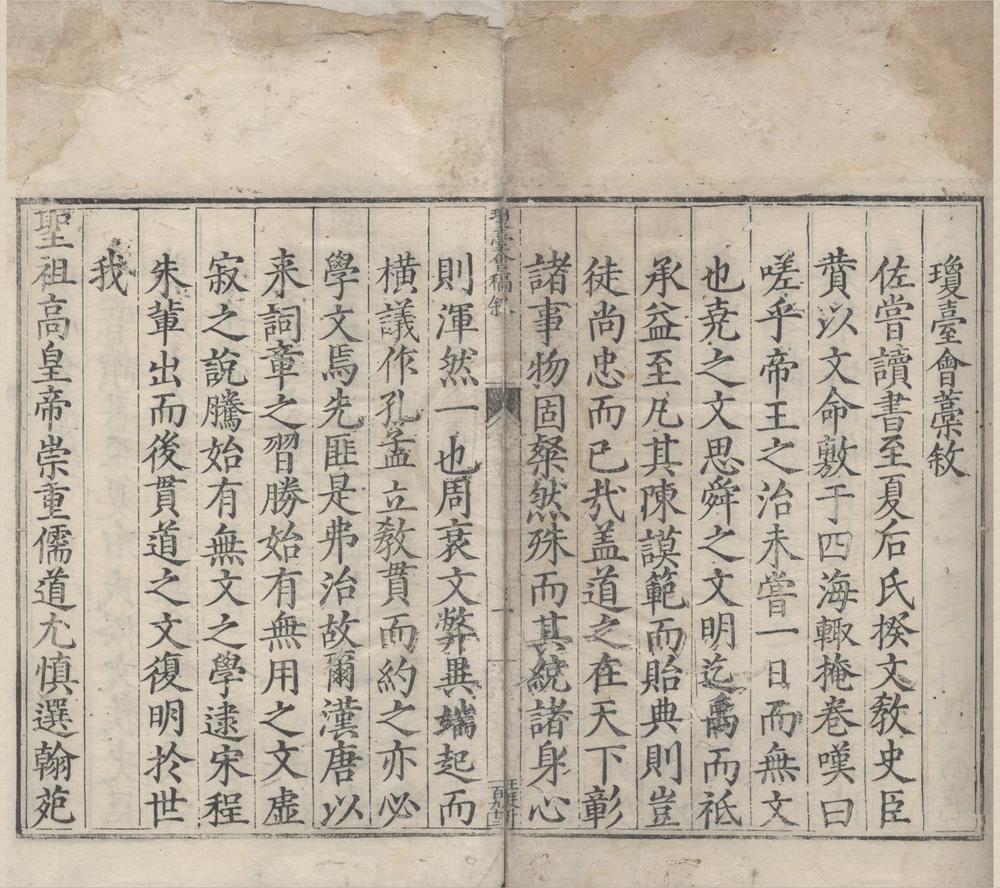 瓊臺會藁敘
佐嘗讀書至夏后氏揆文教史臣
賁以文命敷于四海輙掩卷嘆曰
嗟乎帝王之治未嘗一日而無文
也堯之文思舜之文明迄禹而祗
承益至凡其陳謨範而貽典則豈
徒尚忠而已㢤盖道之在天下彰
諸事物固粲然殊而其統諸身心
瓊臺會稿敘
一
百九十三
則渾然一也周衰文弊異端起而
橫議作孔孟立教貫而約之亦必
學文焉先匪是弗治故爾漢唐以
来詞章之習勝始有無用之文虛
寂之說騰始有無文之學逮宋程
朱輩出而後貫道之文復明於世
我
聖祖高皇帝崇重儒道尤慎選翰苑